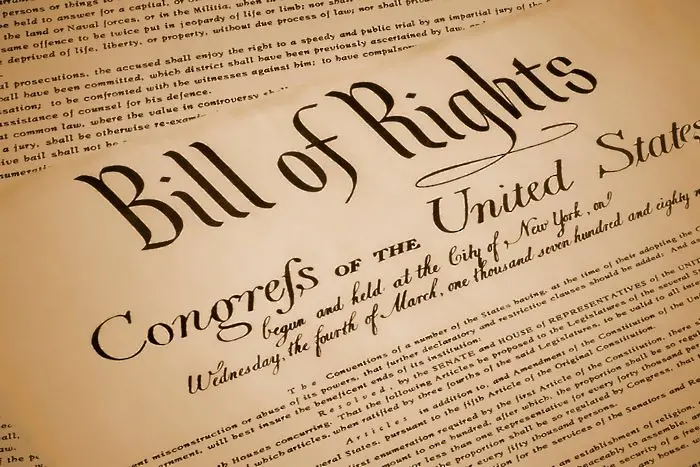 persons or things to
be held to answer for a capital, or
the land or Naval forces, or in the Militia, when in
same offence to be twice put in jeopardy of life or limb; nor shall
deprived of life, liberty, or property, without due process of law; nor shall private
al prosecutions, the accused shall enjoy the right to a speedy and public trial by an impartial jury of the
hall have been committed, which district shall have been previously ascertained by law,
sation; to be confronted with the witnesses against him; to have compulsory
assistance of counsel for his defence.
at common law, where the value in controversy
a jury, shall be otherwise re-exam
ive bail shall not be
numerati
Bill of Rights
Congreſs OF THE United States
begun and held at the City of New York, on
Wednesday, the fourth of March, one thousand seven hundred and eighty
The Conventions of a number of the States having, at the time of their adopting the
misconstruction or abuse of its powers, that further declaratory and restrictive clauses should be added: And
ernment, will best insure the beneficent ends of its institution.
Resolved, by the SENATE and HOUSE of REPRESENTATIVES of the
Houses concurring. That the following Articles be proposed to the Legislatures of the several
which articles, when ratified by three fourths of the said Legislatures, to be valid to all
Articles in addition to, and Amendment of the Constitution of the
several States, pursuant to the fifth Article of the Original Constitution.
enumeration required by the first Article of the Constitution, there
amount to one hundred, after which, the proportion shall be so
than one Representative for every forty thousand
shall be so regulated by Congress, that
every fifty thousand persons.
for the services of the Senators and
an establishment of religion,